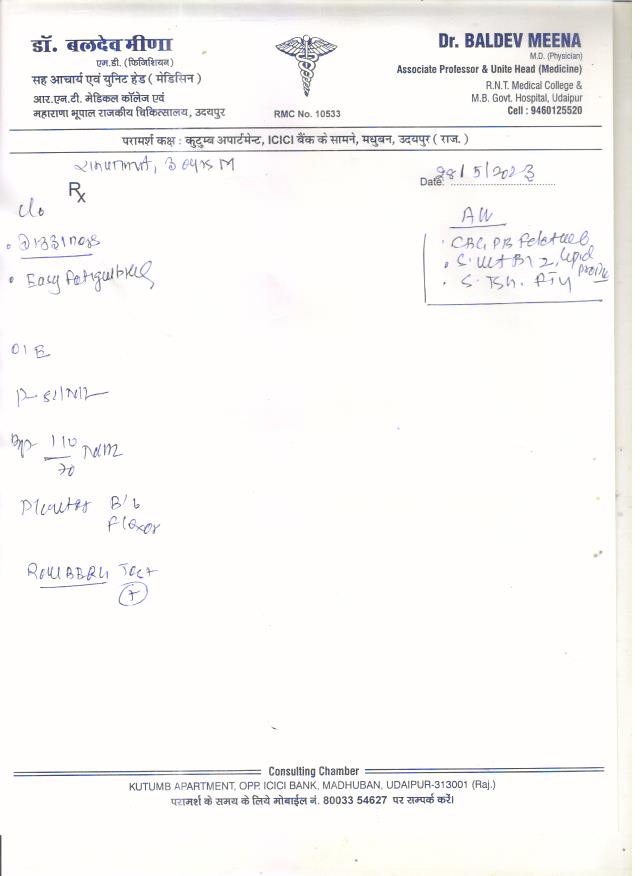 डॉ. बलदेव मीणा
एम.डी. (फिजिशियन)
सह आचार्य एवं यूनिट हेड ( मेडिसिन )
आर.एन.टी. मेडिकल कॉलेज एवं
महाराणा भूपाल राजकीय चिकित्सालय, उदयपुर
RMC No. 10533
Dr. BALDEV MEENA
M.D. (Physician)
Associate Professor & Unite Head (Medicine)
R.N.T. Medical College &
M.B. Govt. Hospital, Udaipur
Cell : 9460125520
परामर्श कक्ष : कुटुम्ब अपार्टमेन्ट, ICICI बैंक के सामने, मधुबन, उदयपुर ( राज. )
M
Date: 28/5/2023
Rx
c/o
• Dizziness
• Easy
Adv
• CBC, PB
• S. Vit B12, lipid profile
• S. TSH.
O/E
P- 82/
BP 110/70
B/L
Flexor
Test
+
Consulting Chamber
KUTUMB APARTMENT, OPP. ICICI BANK, MADHUBAN, UDAIPUR-313001 (Raj.)
परामर्श के समय के लिये मोबाईल नं. 80033 54627 पर सम्पर्क करें।